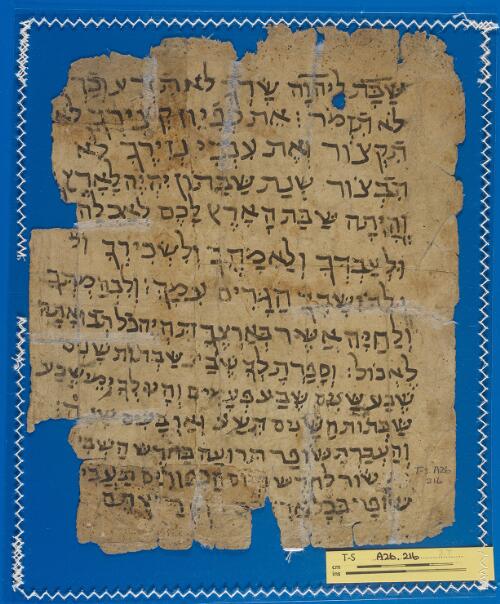 שבת ליהוה שדך לא תזרע
לא תזמר : את ספיח קצירך לא
תקצור ואת ענבי נזירך לא
תבצור שנת שבתון יהיה לארץ
והיתה שבת הארץ לכם לאכלה
ולעבדך ולאמתך ולשכירך ול
ולתושבך הגרים עמך : ולבהמתך
ולחיה אשר בארצך תהיה כל תבואתה
לאכול : וספרת לך שבע שבתות שנים
שבע שנים שבע פעמים והיו לך ימי שבע
שבתות השנים תשע וארבעים שנה :
והעברת שופר תרועה בחדש השבי
שור לחדש ביום הכפורים תעבי
שופר בכל
T-S A26
216
T-S A26.216
cm
ins